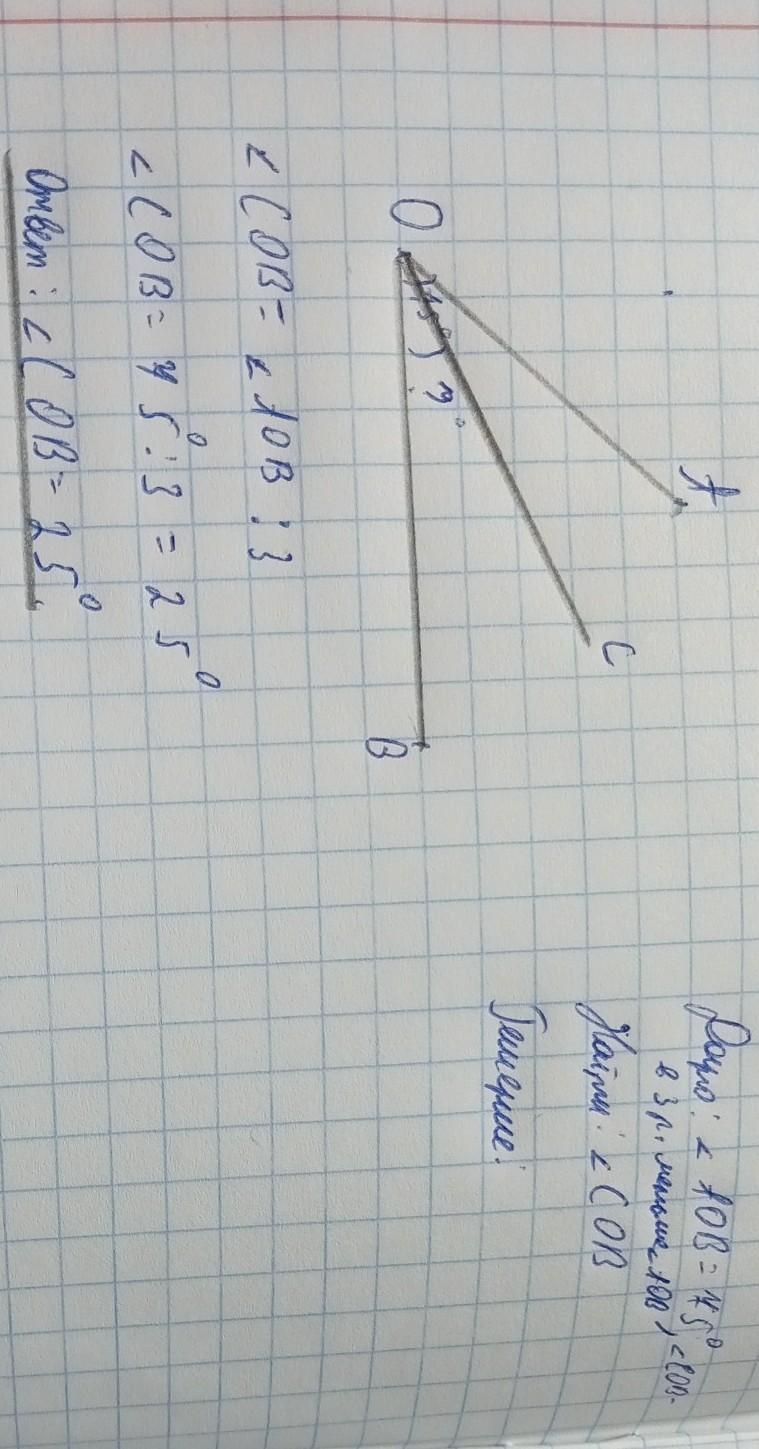 Дано: < AOB = 75°, < COB-
в 3 р. меньше < AOB
Найти: < COB
Решение:
A
C
O
75°
?°
B
< COB = < AOB : 3
< COB = 75° : 3 = 25°
Ответ: < COB = 25°